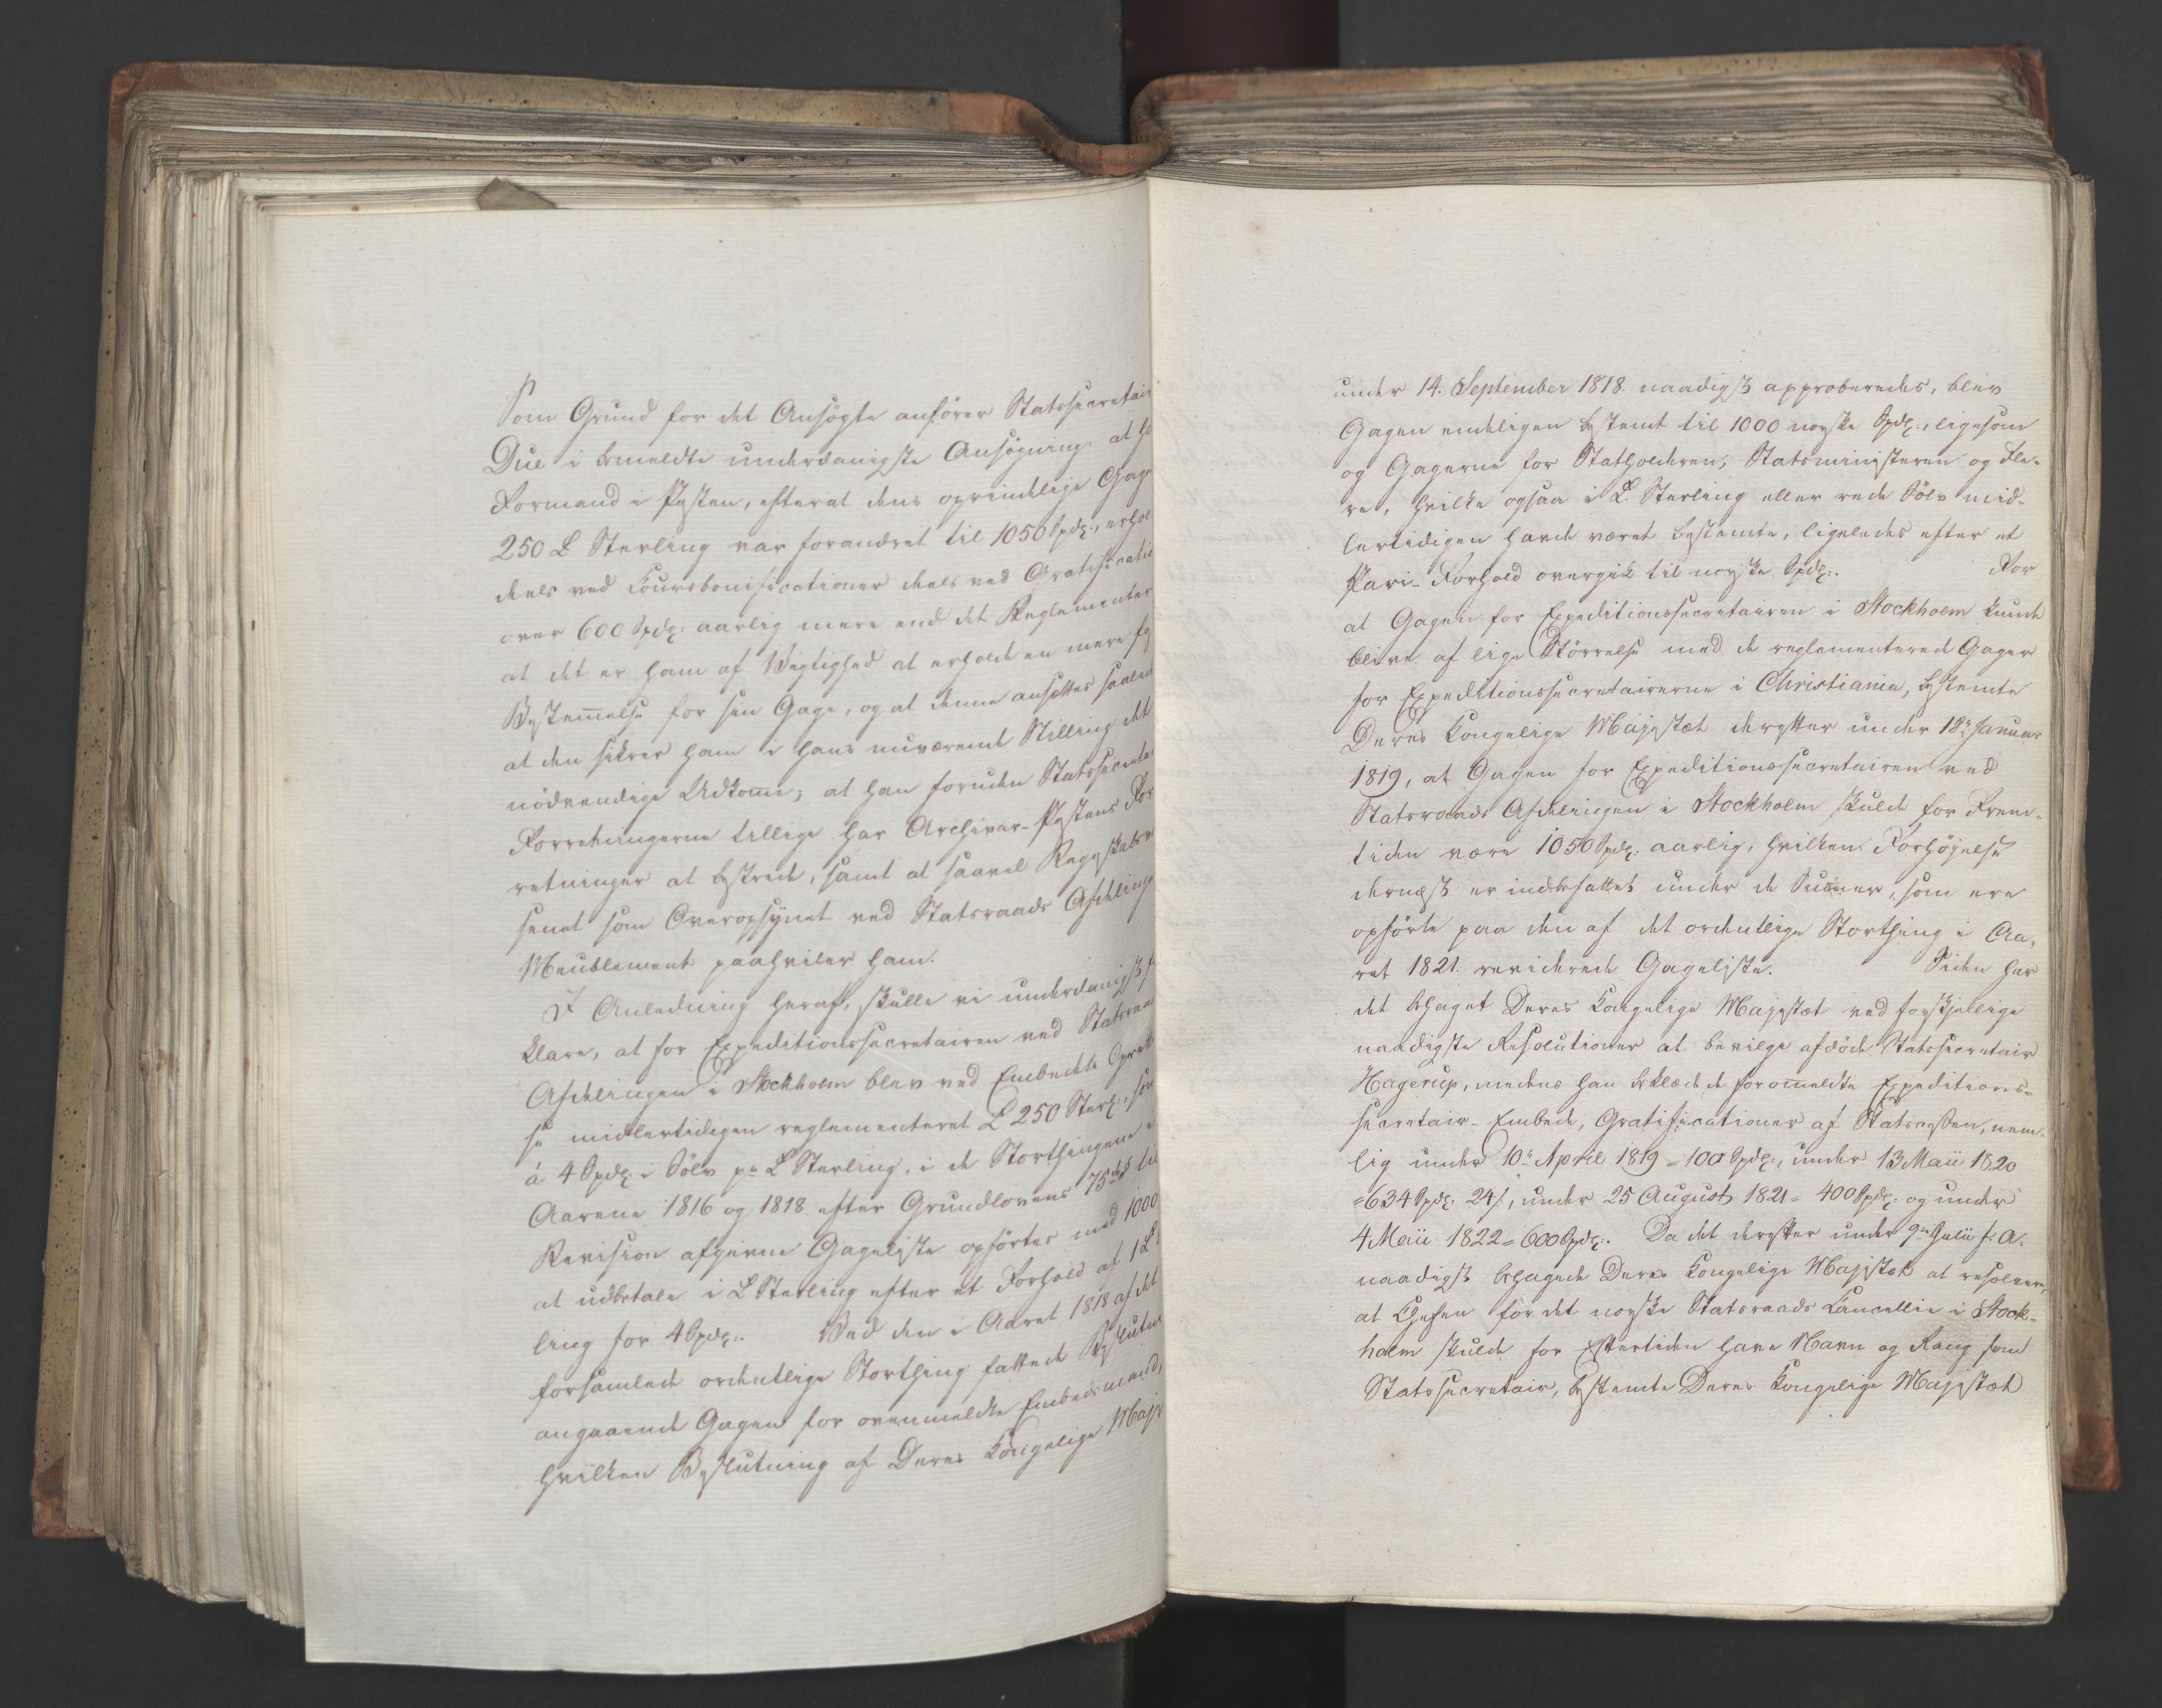 Som Grund for det Ansøgte anfører Statssecretair
Due i bemeldte underdanigste Ansøgning: at
Formand i Posten, efterat dens oprindelige Gage
250 £ Sterling var forandret til 1050 Spdlr:, erhol
deels ved Coursbonificationer deels ved Gratificatio
over 600 Spdlr: aarlig mere end det Reglementer
at det er ham af Vigtighed at erholde en mere
Bestem̅else for sin Gage, og at denne ansættes saaled
at den sikrer ham i hans nuværende Stilling det
nødvendige Udkom̅e; at han foruden Statssecretai
Forretningerne tillige har Archivar-Postens For
retninger at bestride, samt at saavel Regnskabsvæ
senet som Overopsynet ved Statsraads Afdelinge
Meublement paahviler ham.
I Anledning heraf, skulle vi underdanigst
klare, at for Expeditionssecretairen ved Statsraa
Afdelingen i Stockholm blev ved Embedets Opret
se midlertidigen reglementeret £ 250 Sterl:, som
á 4 Spdlr: i Sölv pr £ Sterling, i de Storthingene i
Aarene 1816 og 1818 efter Grundlovens 75de § til
Revision afgivne Gageliste opførtes med 1000
at udbetale i £ Sterling efter et Forhold af 1 £
ling for 4 Spdlr:. Ved den i Aaret 1818 af det
forsamlede ordentlige Storthing fattede Beslutni
angaaende Gagen for ovenmeldte Embedsmand,
hvilken Beslutning af Deres Kongelige Maje
under 14. September 1818. naadigst approberedes, blev
Gagen endeligen bestemt til 1000 norske Spdlr:, ligesom
og Gagerne for Statholderen, Statsministeren og Fle-
re, hvilke ogsaa i £. Sterling eller rede Sölv mid-
lertidigen havde været bestemte, ligeledes efter et
Pari-Forhold overgik til norske Spdlr:. For
at Gagen for Expeditionssecretairen i Stockholm kunde
blive af lige Størrelse med de reglementerede Gager
for Expeditionssecretairerne i Christiania, bestemte
Deres Kongelige Majestæt derefter under 18de Januar
1819, at Gagen for Expeditionssecretairen ved
Statsraads Afdelingen i Stockholm skulde for Frem-
tiden være 1050 Spdlr: aarlig, hvilken Forhøjelse
dernæst er indbefattet under de Sum̅er, som ere
opførte paa den af det ordentlige Storthing i Aa-
ret 1821. reviderede Gageliste. Siden har
det behaget Deres Kongelige Majestæt ved forskjellige
naadigste Resolutioner at bevilge afdøde Statssecretair
Hagerup, medens han beklædede forom̅eldte Expeditions-
secretair-Embede, Gratificationer af Statscassen, nem-
lig under 10de April 1819 = 100 Spdlr:, under 13 Maii 1820
= 634 Spdlr: 24 ſ, under 25 August 1821 = 400 Spdlr: og under
4 Maii 1822 = 600 Spdlr:. Da det derefter under 9de Julii s: A.
naadigst behagede Deres Kongelige Majestæt at resolvere,
at Chefen for det norske Statsraads Cancellie i Stock-
holm skulde for Eftertiden have Navn og Rang som
Statssecretair, bestemte Deres Kongelige Majestæt